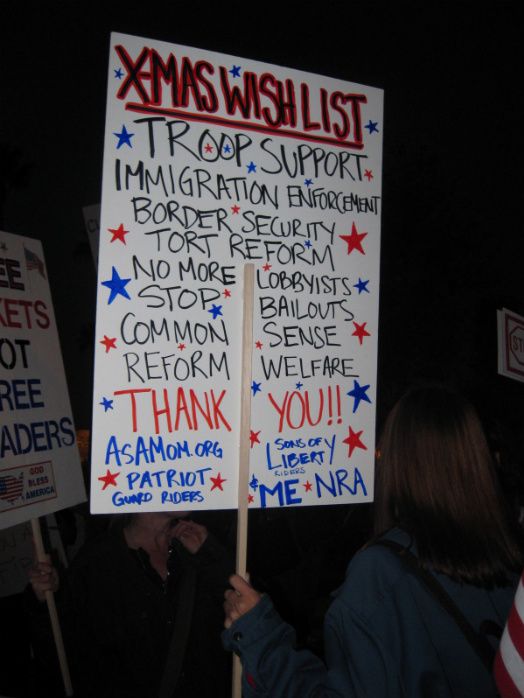 X-MAS WISH LIST
TROOP SUPPORT
IMMIGRATION ENFORCEMENT
BORDER SECURITY
TORT REFORM
NO MORE LOBBYISTS
STOP BAILOUTS
COMMON SENSE
REFORM WELFARE
THANK YOU!!
ASAMOM.ORG
PATRIOT
GUARD RIDERS
SONS OF
LIBERTY
RIDERS
& ME NRA
GOD BLESS
AMERICA